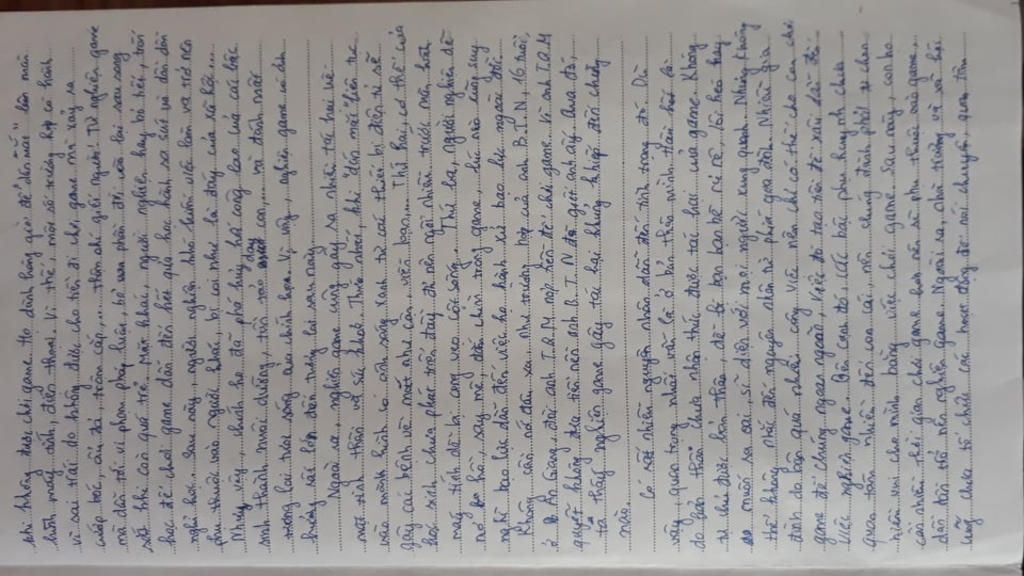 khi không được chơi game họ dành hàng giờ để "dán mắt" lên màn
hình máy tính, điện thoại. Vì thế, một số triệu hợp có hành
vi sai trái do không được cho tiền đi chơi game mà xảy ra
cướp bóc, ăn xin, trộm cắp,... thậm chí giết người! Từ nghiện game
mà dẫn tới vi phạm pháp luật, bỏ xem phần đời còn lại sau song
sắt khi còn quá trẻ. Mặt khác, người nghiện hay bỏ tiết, trốn
học để chơi game dẫn đến kết quả học hành sa sút và đôi
nghỉ học. Sau này, người nghiện khó kiếm việc làm và trở nên
phụ thuộc vào người khác, bị coi như là đáy của xã hội...
Như vậy, chính họ đã phá hủy công lao của các bậc
sinh thành nuôi dưỡng, và đánh mất
tương lai tươi sáng sau chính họ. Vì vậy, nghiện game có ảnh
hưởng rất lớn đến tương lai sau này.
Ngoài ra, nghiện game cũng gây ra nhiều tác hại về
mặt tinh thần và sức khoẻ. Thứ nhất, khi "dán mắt" liên tục
vào màn hình có ánh sáng xanh từ các thiết bị điện tử sẽ
gây các bệnh về mắt như cận, viễn, loạn,... Thứ hai, cơ thể của
học sinh chưa phát triển đầy đủ nên ngồi nhiều trước màn hình
máy tính dễ bị cong vẹo cột sống... Thứ ba, người nghiện dễ
hồ, say mê, đắm chìm trong game, lúc nào cũng suy
nghĩ bạo lực dẫn đến việc họ hành xử bạo lực ngoài đời.
Không cần nói đâu xa. Như trường hợp của anh B.T.N, 16 tuổi,
ở An Giang, đòi anh T.Q.M nộp tiền để chơi game. Vì anh T.Q.M
quyết không đưa tiền nên anh B.T.N đã giết anh ấy. Qua đó,
ta thấy nghiện game gây tác hại khủng khiếp đối chúng
nào.
Có rất nhiều nguyên nhân dẫn đến tình trạng đó. Dù
vậy, quan trọng nhất vẫn là ở bản thân mình
do bản thân chưa nhận thức được tác hại của game. Không
tự chủ được bản thân, dễ bị bạn bè rủ rê, lôi kéo hay
muốn ra oai, sĩ diện với mọi người xung quanh. Nhưng không
thể không nhắc đến nguyên nhân từ phía gia đình. Nhiều gia
đình do bận quá nhiều công việc nên chỉ có thể cho con chơi
game để chúng ngoan ngoãn, việc đó tạo tiền đề xấu dẫn đến
việc nghiện game. Bên cạnh đó, các bậc phụ huynh chưa
quan tâm nhiều đến con cái, nên chúng đành phải cho
niềm vui cho mình bằng việc chơi game. Sau này, con họ
còn nhiều thời gian chơi game hơn nên sẽ phụ thuộc vào game,
dần dần trở nên nghiện game. Ngoài ra, nhà trường và xã hội
cũng chưa tổ chức các hoạt động để nói chuyện, quan tâm